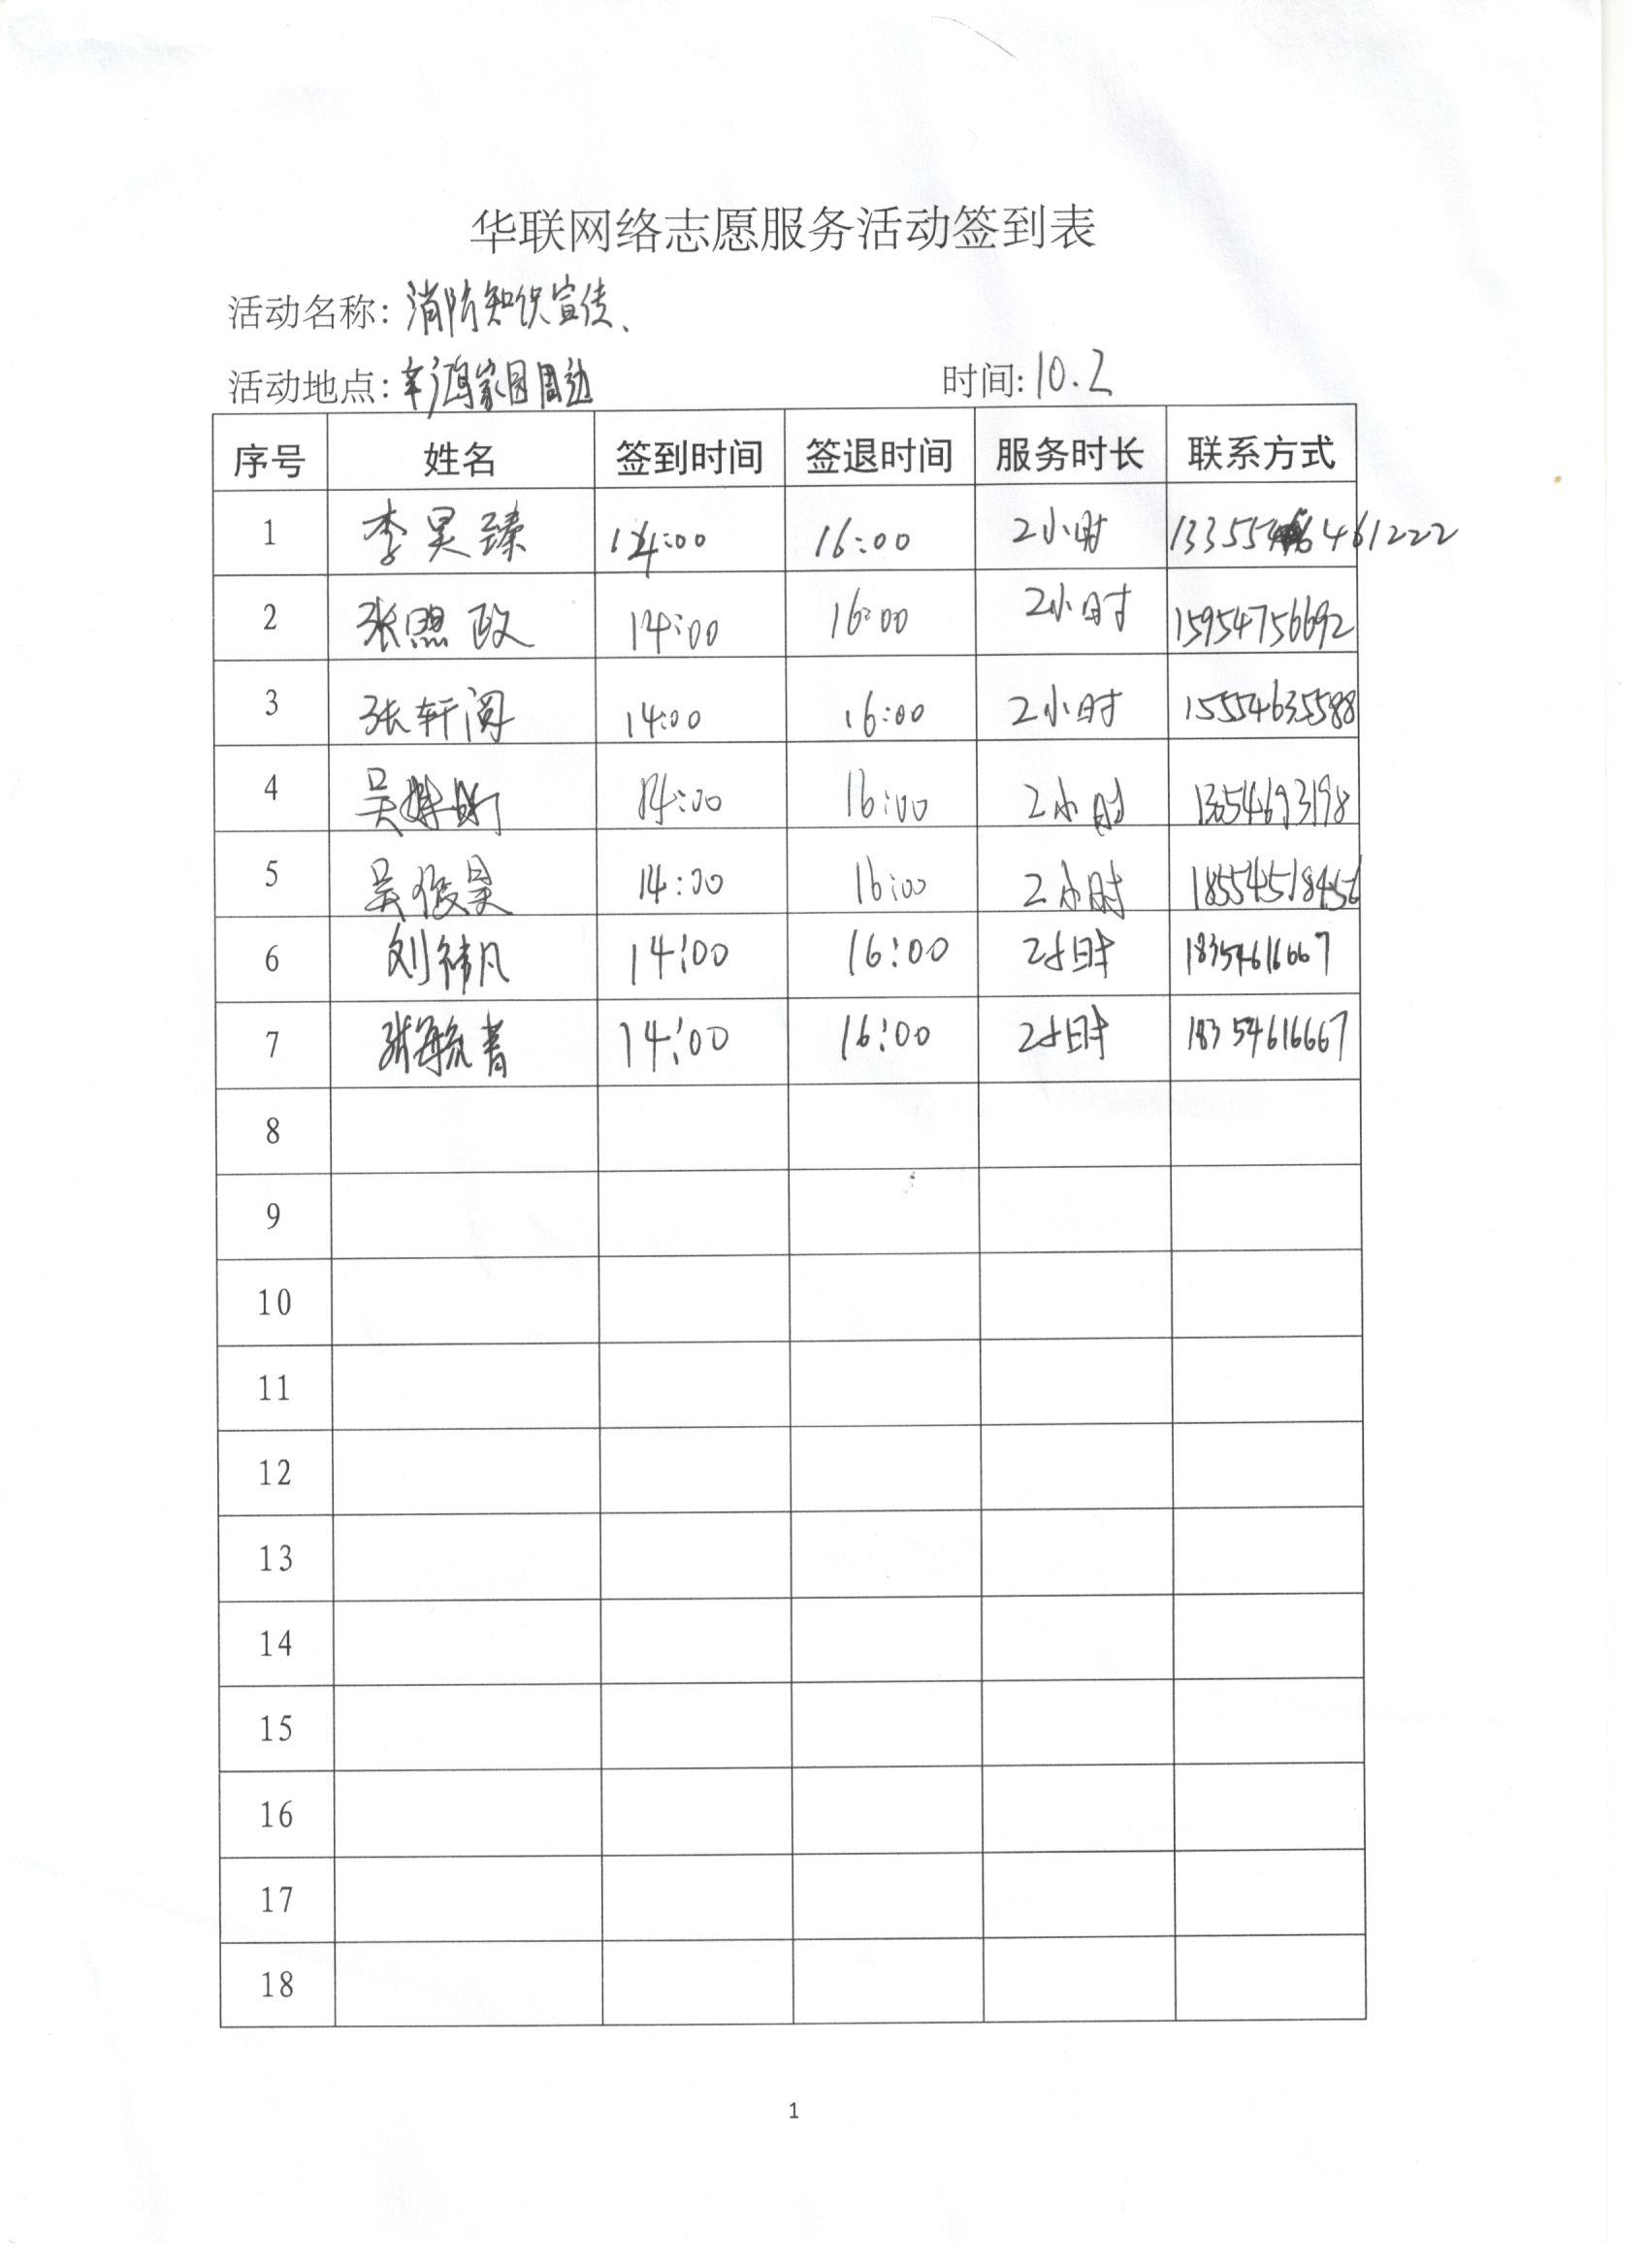 华联网络志愿服务活动签到表
活动名称: 消防知识宣传、
活动地点: 辛鸿家园周边 时间: 10.2
序号 姓名 签到时间 签退时间 服务时长 联系方式
1 李昊臻 14:00 16:00 2小时 13355461222
2 张照政 14:00 16:00 2小时 15954756692
3 张轩阁 14:00 16:00 2小时 15554635588
4 吴 14:00 16:00 2小时
5 吴俊昊 14:00 16:00 2小时 18554518456
6 刘祎凡 14:00 16:00 2小时 18354616667
7 张毓菁 14:00 16:00 2小时 18354616667
8
9
10
11
12
13
14
15
16
17
18
1